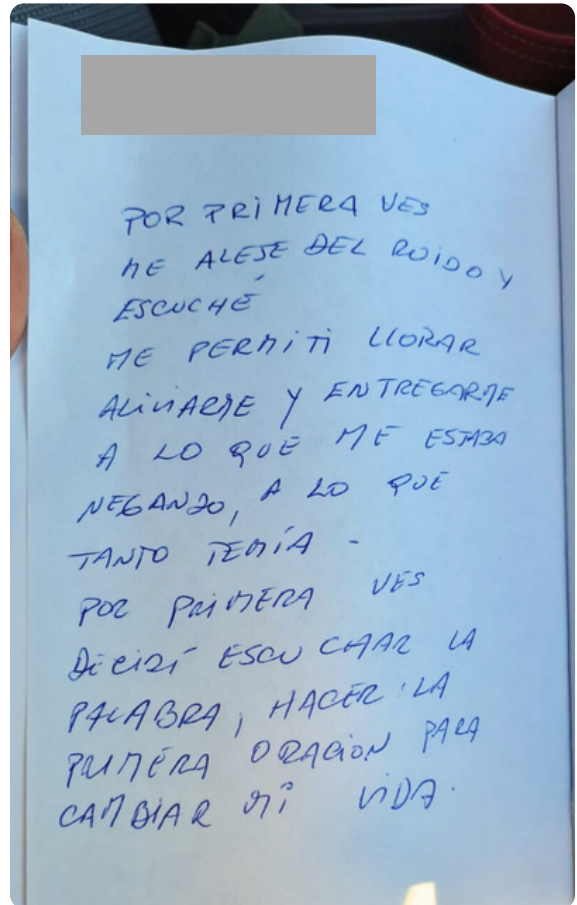 POR PRIMERA VES
ME ALEJE DEL RUIDO Y
ESCUCHÉ
ME PERMITI LLORAR
ALIVIARME Y ENTREGARME
A LO QUE ME ESTABA
NEGANDO, A LO QUE
TANTO TEMÍA -
POR PRIMERA VES
DECIDÍ ESCUCHAR LA
PALABRA, HACER LA
PRIMERA ORACION PARA
CAMBIAR MI VIDA.